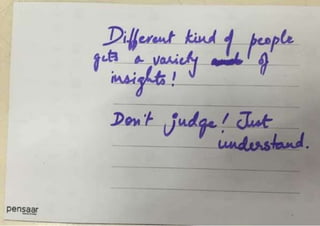 Different kind of people
gets a variety of
insights!
Don't judge! Just
understand.
pensaar